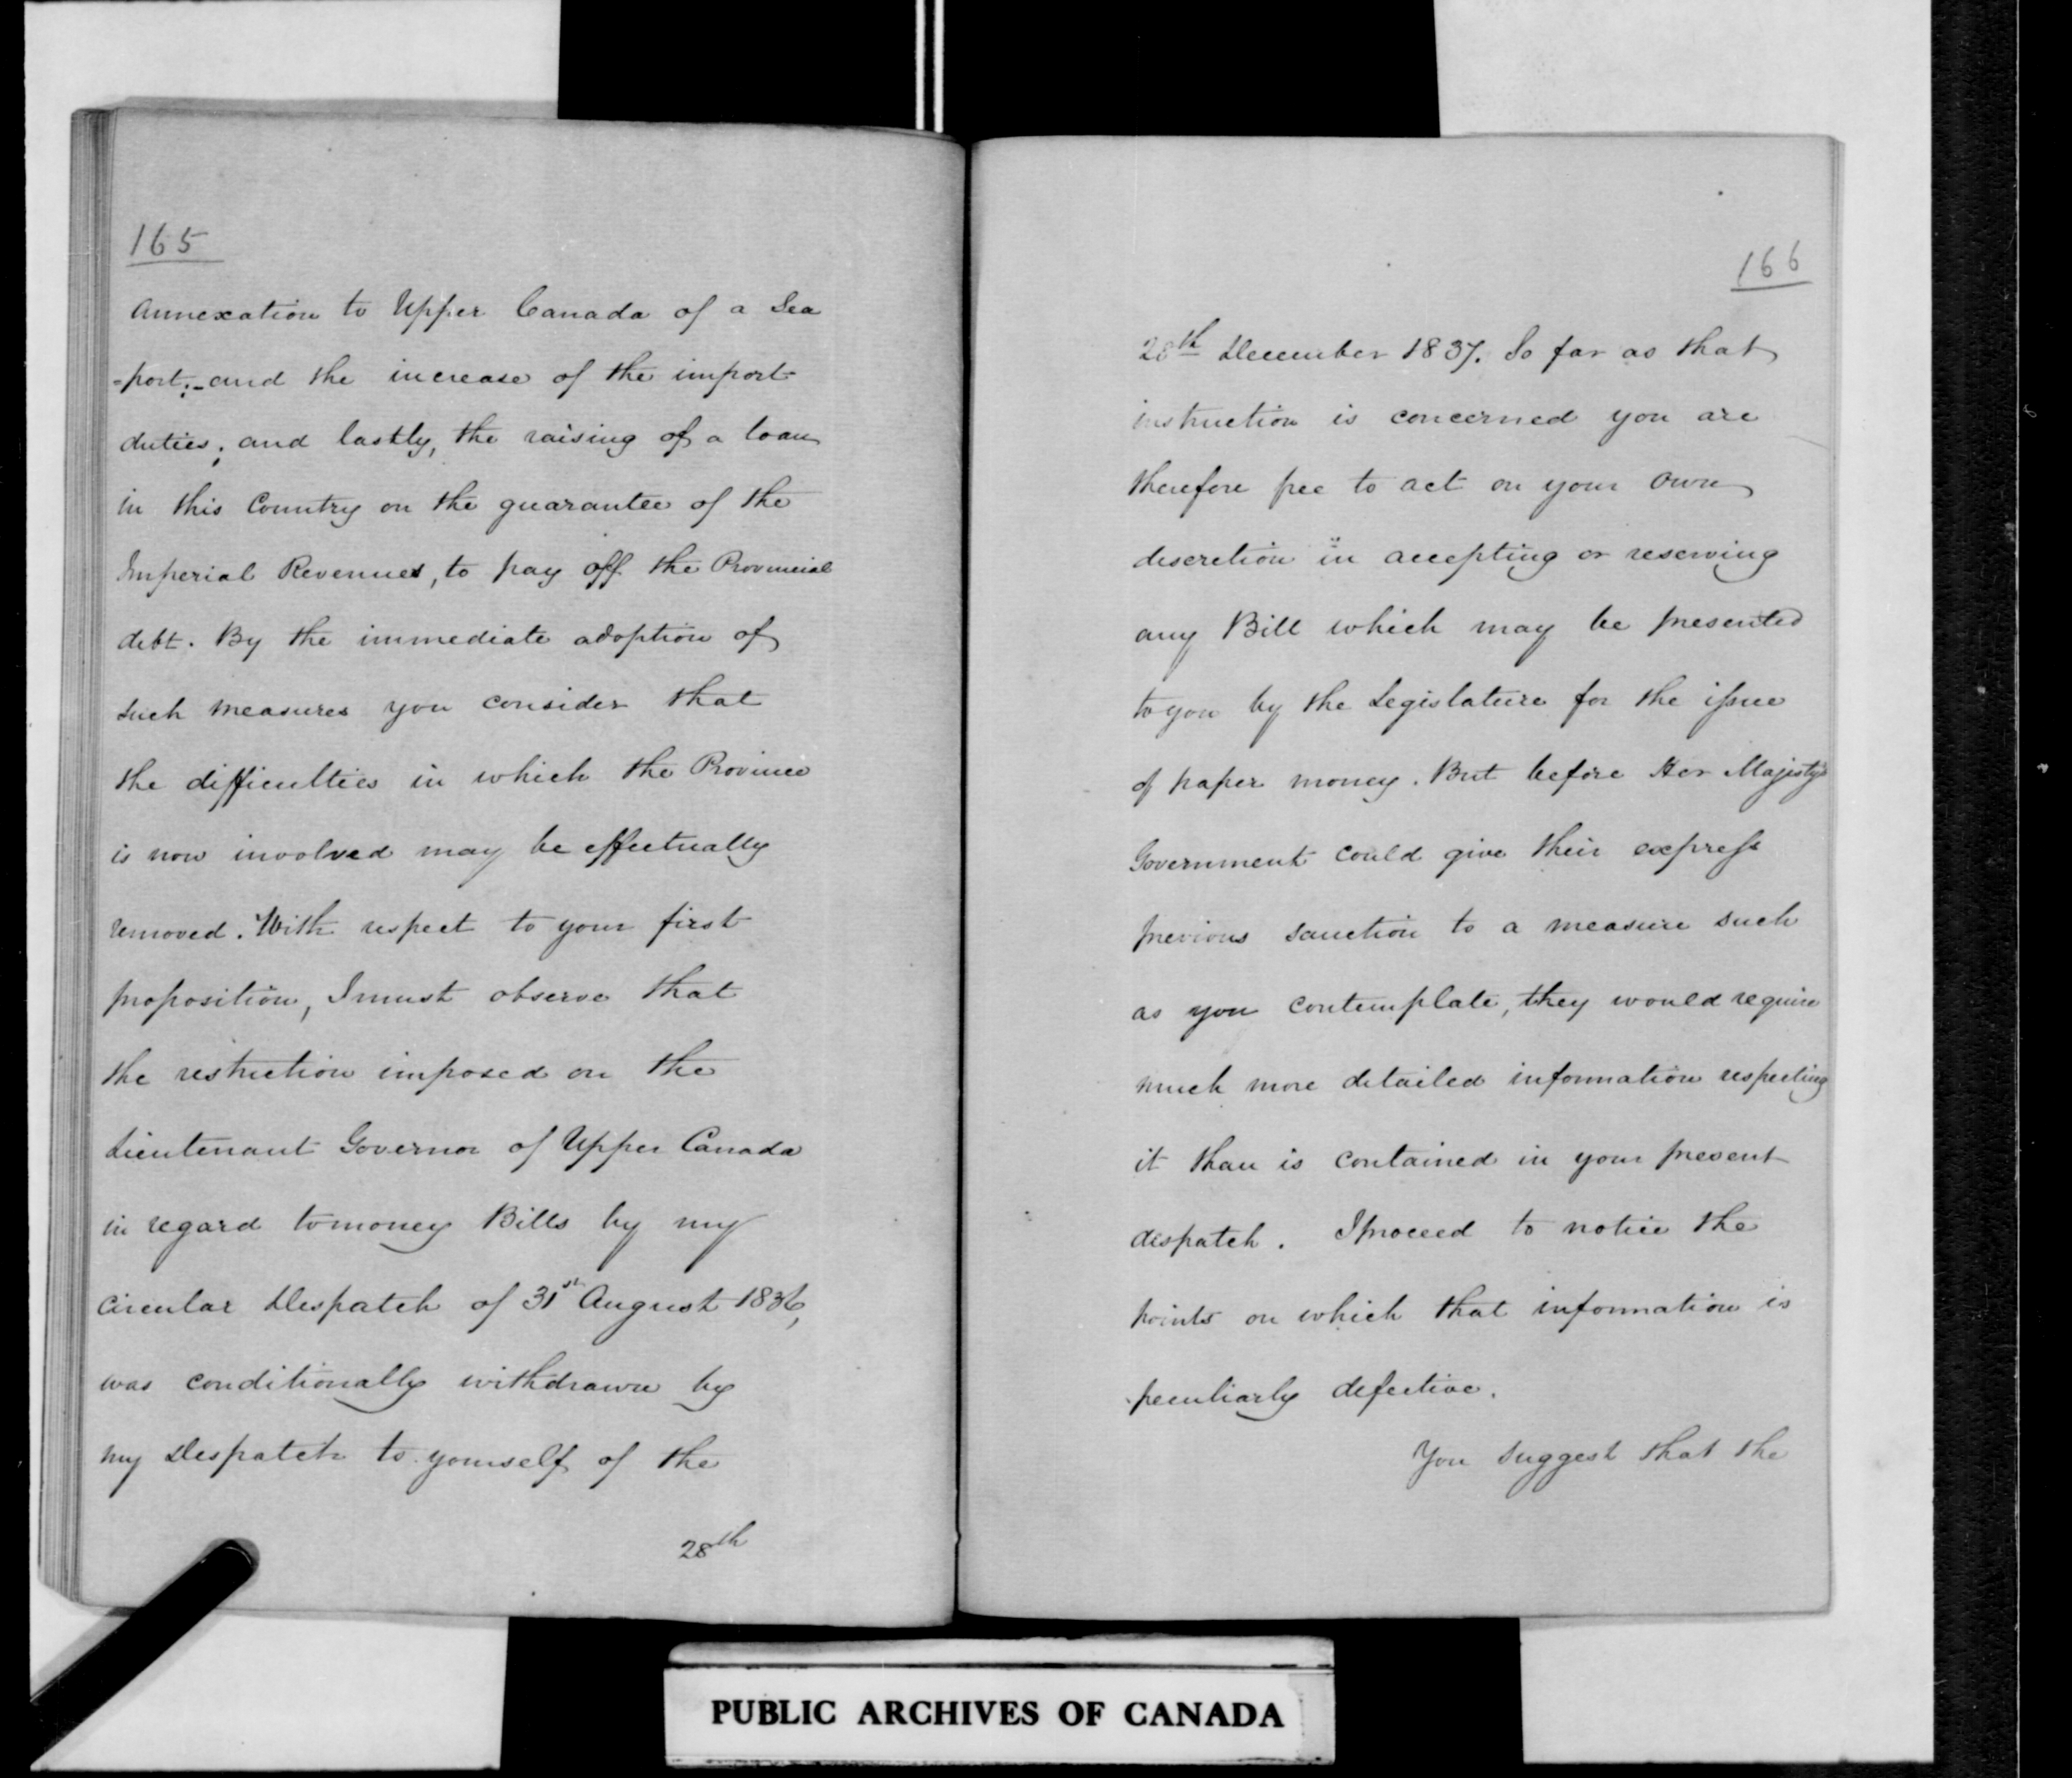 165
annexation to Upper Canada of a Sea
-port;- and the increase of the import
duties; and lastly, the raising of a loan
in this Country on the guarantee of the
Imperial Revenues, to pay off the Provincial
debt. By the immediate adoption of
such measures you consider that
the difficulties in which the Province
is now involved may be effectually
removed. With respect to your first
proposition, I must observe that
the restriction imposed on the
Lieutenant Governor of Upper Canada
in regard to money Bills by my
Circular Despatch of 31st August 1836,
was conditionally withdrawn by
my Despatch to yourself of the
28th
166
28th December 1837. So far as that
instruction is concerned you are
therefore free to act on your own
discretion in accepting or reserving
any Bill which may be presented
to you by the Legislature for the issue
of paper money. But before Her Majesty's
Government could give their express
previous sanction to a measure such
as you contemplate, they would require
much more detailed information respecting
it than is contained in your present
dispatch. I proceed to notice the
points on which that information is
peculiarly defective.
You suggest that the
PUBLIC ARCHIVES OF CANADA